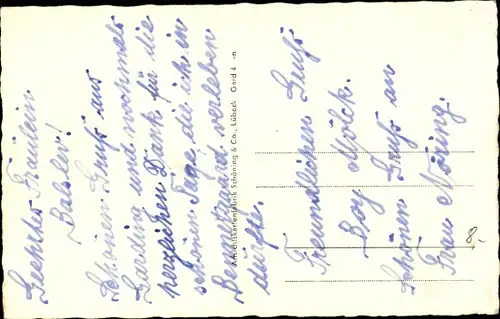 Geehrtes Fräulein
Balsler!
Schönen Gruß aus
Garding und nochmals
herzlichen Dank für die
schönen Tage die ich in
verleben
durfte.
Ansichtskartenfabrik Schöning & Co., Lübeck Gard 4 n
Freundlichen Gruß
Boy
Schönen Gruß an
Frau Nöring.
8.